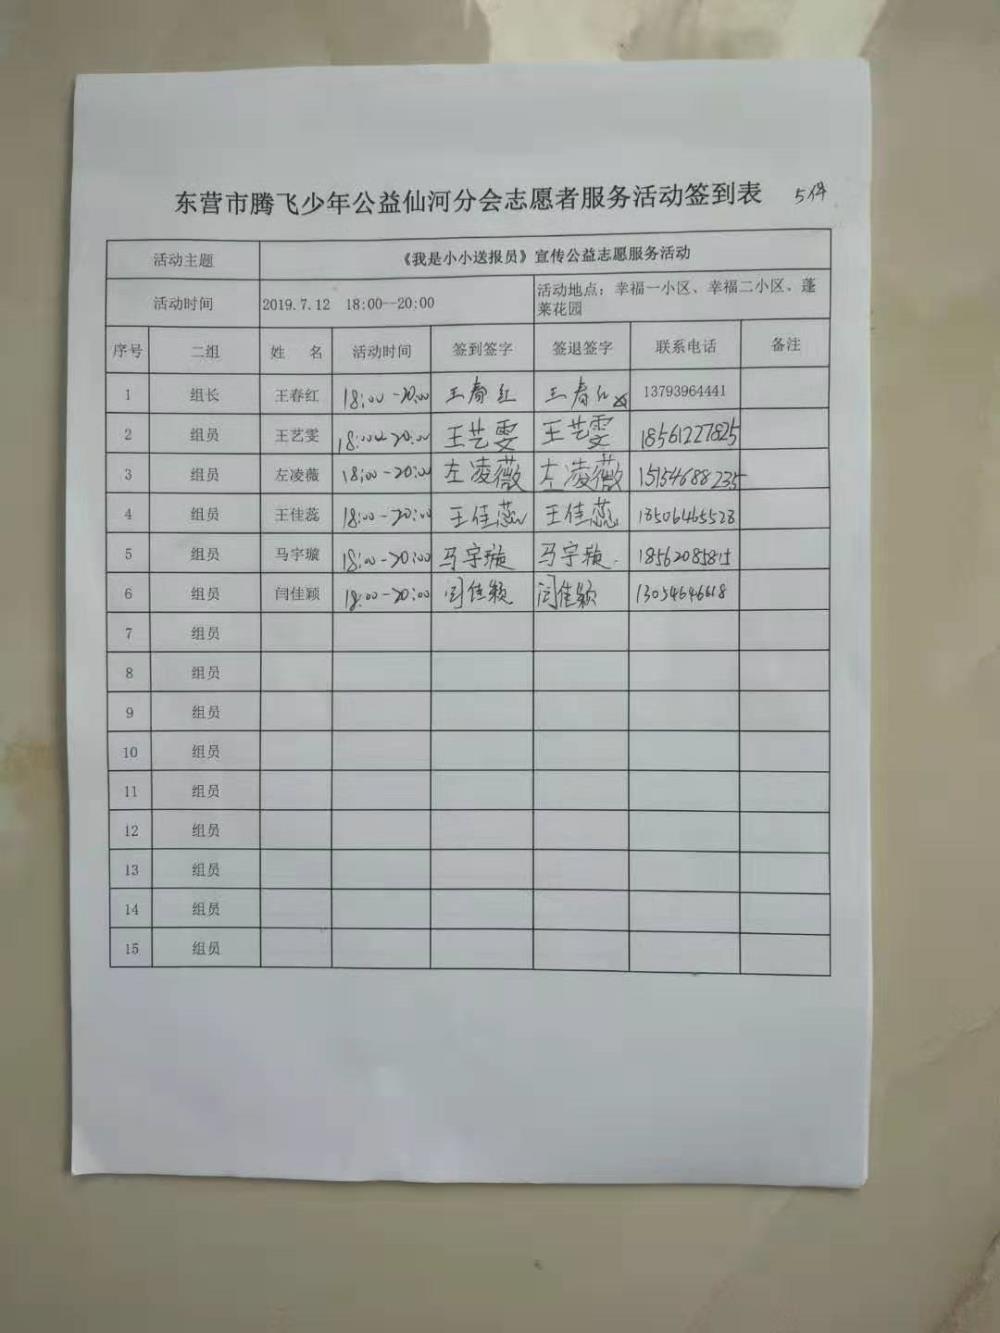 东营市腾飞少年公益仙河分会志愿者服务活动签到表 5件
活动主题 《我是小小送报员》宣传公益志愿服务活动
活动时间 2019.7.12 18:00--20:00 活动地点：幸福一小区、幸福二小区、蓬
莱花园
序号 二组 姓 名 活动时间 签到签字 签退签字 联系电话 备注
1 组长 王春红 18:00-20:00 王春红 王春红 13793964441
2 组员 王艺雯 18:00-20:00 王艺雯 王艺雯 18561227825
3 组员 左凌薇 18:00-20:00 左凌薇 左凌薇 15154688235
4 组员 王佳蕊 18:00-20:00 王佳蕊 王佳蕊 13506465528
5 组员 马宇璇 18:00-20:00 马宇璇 马宇璇 18562085815
6 组员 闫佳颖 18:00-20:00 闫佳颖 闫佳颖 13054646618
7 组员
8 组员
9 组员
10 组员
11 组员
12 组员
13 组员
14 组员
15 组员